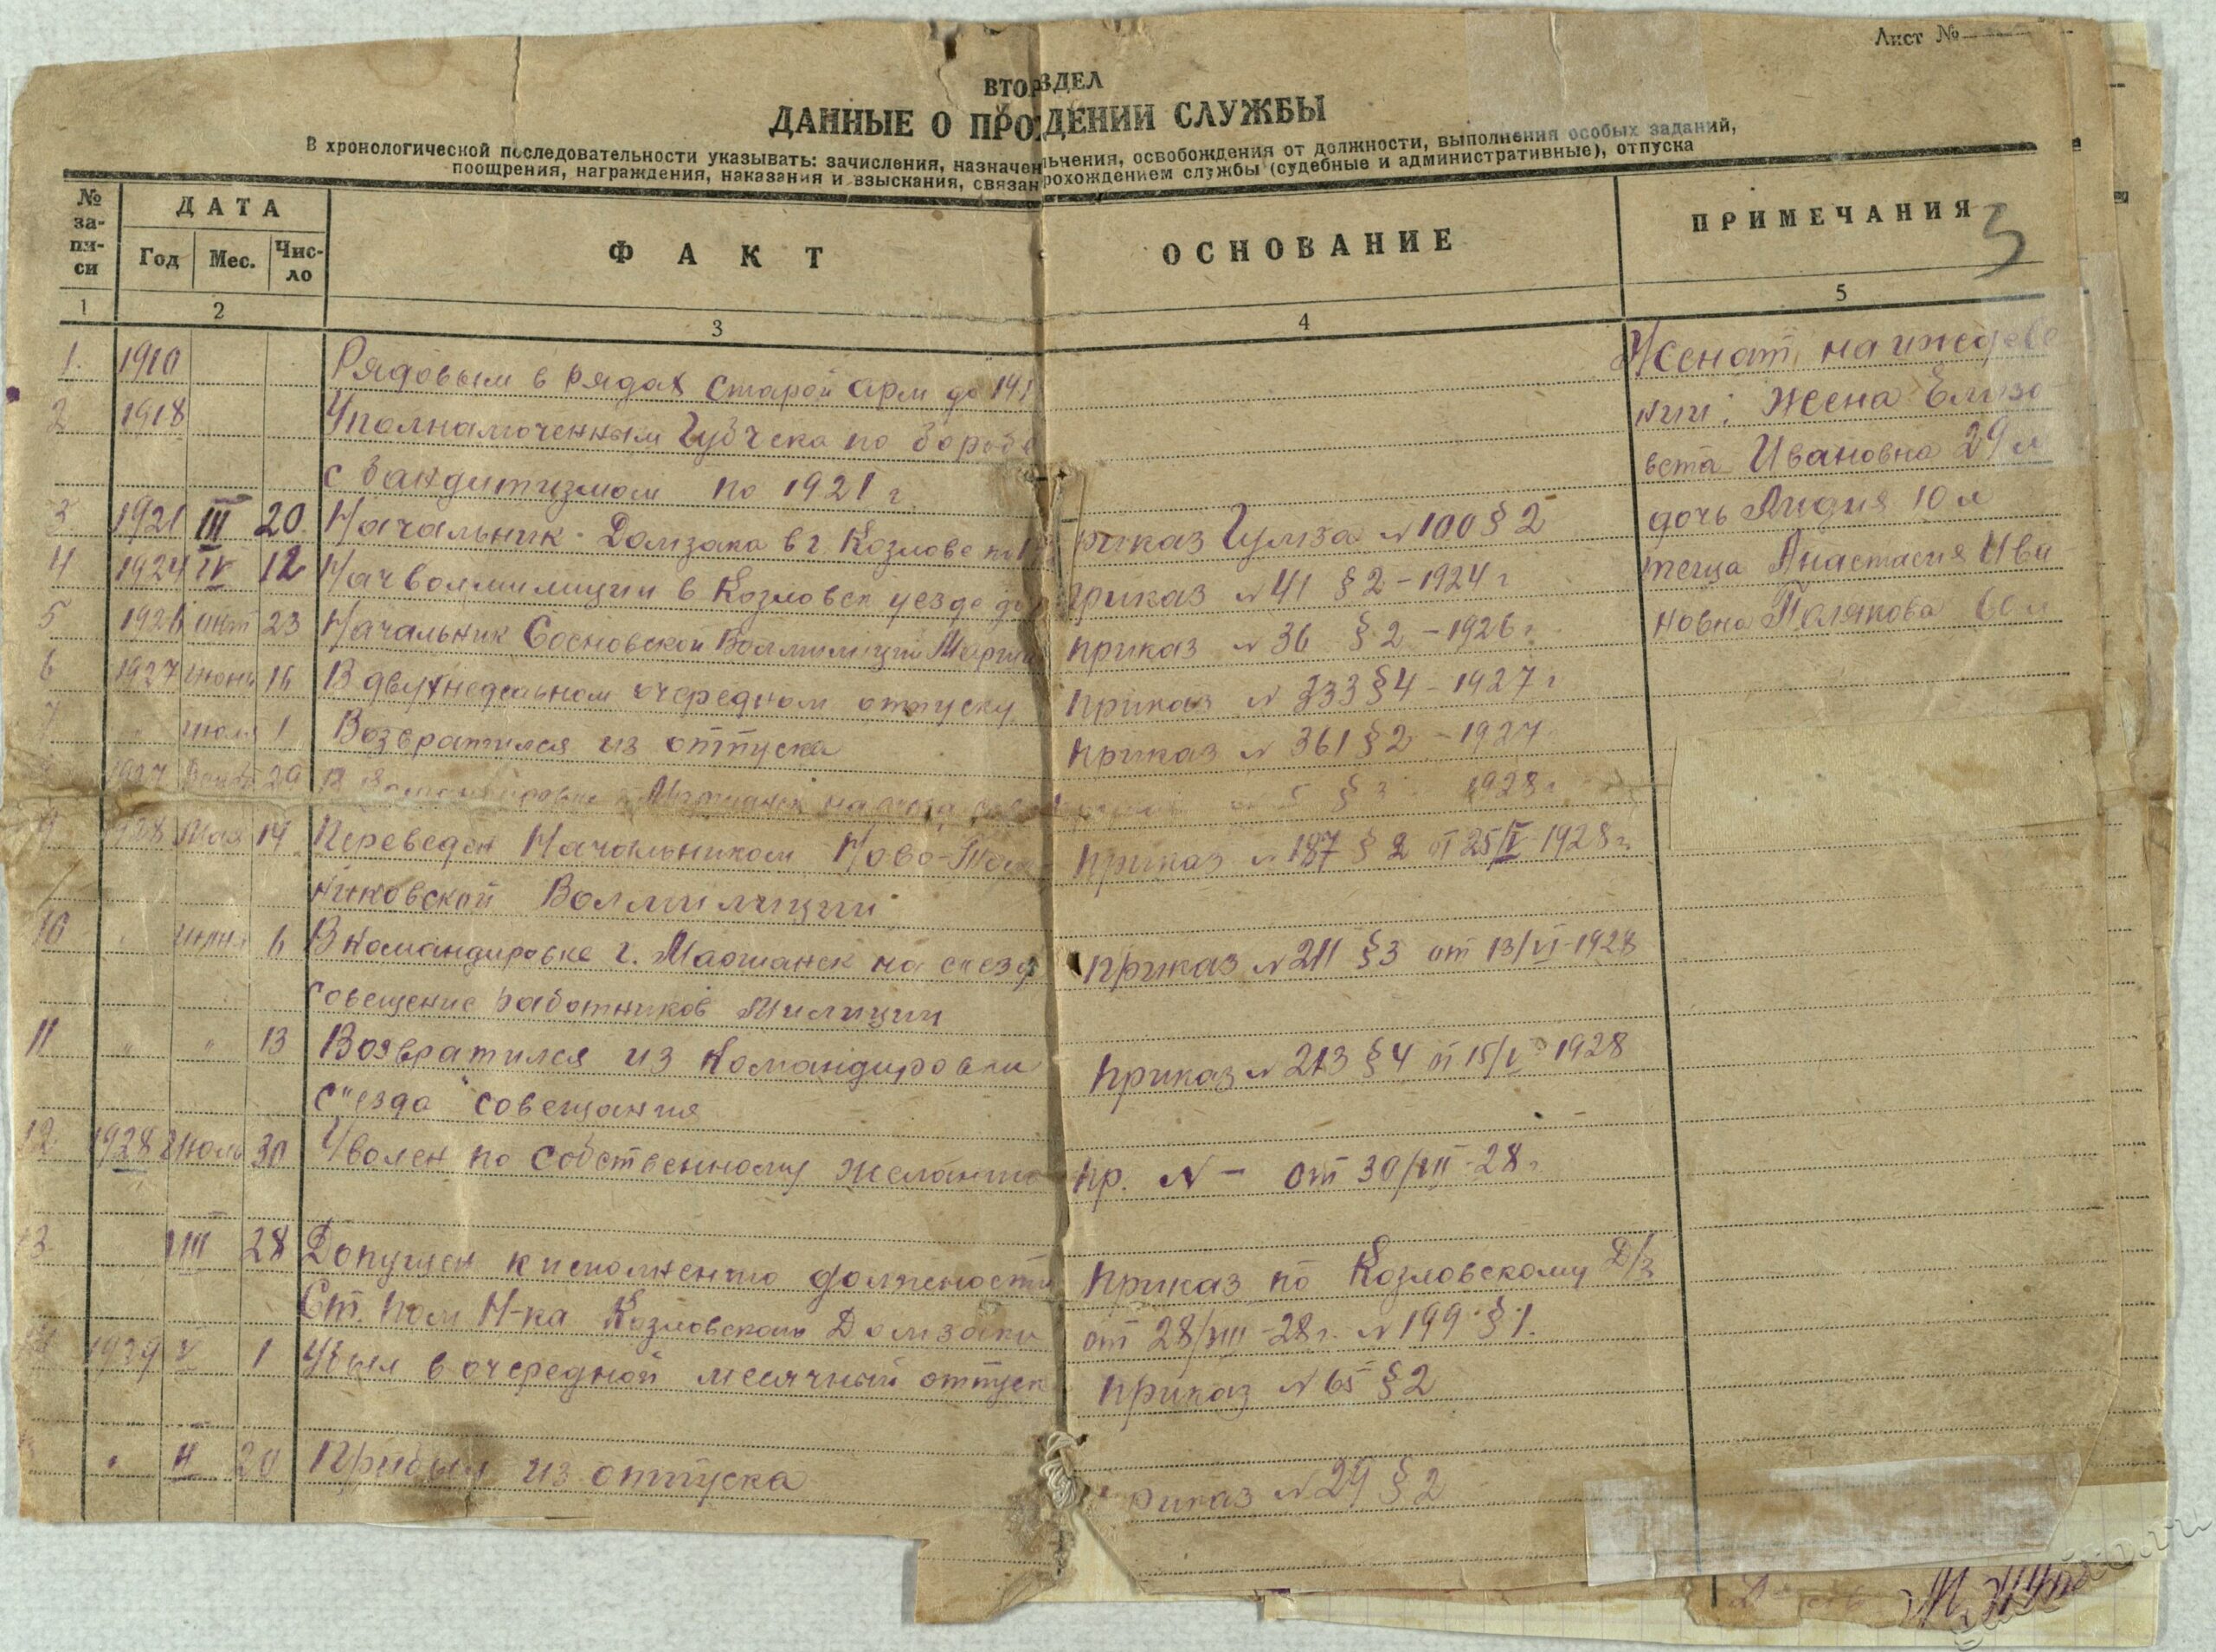 Лист №
ВТОР ЗДЕЛ
ДАННЫЕ О ПРО ДЕНИИ СЛУЖБЫ
В хронологической последовательности указывать: зачисления, назначен ьчения, освобождения от должности, выполнения особых заданий,
поощрения, награждения, наказания и взыскания, связан рохождением службы (судебные и административные), отпуска
№ за-пи-си
ДАТА
Год Мес. Чис-ло
ФАКТ
ОСНОВАНИЕ
ПРИМЕЧАНИЯ
5
1 2 3 4 5
1. 1910 Рядовым в рядах старой арм до 191
2 1918 Уполномоченным Губчека по борьбе
с бандитизмом по 1921 г
3 1921 III 20 Начальник Домзака в г. Козлове по приказ № 100 § 2
4 1924 IV 12 Начволмилиции в Козловск уезде до приказ № 41 § 2 - 1924 г
5 1926 23 Начальник Сосновской Волмилиции приказ № 36 § 2 - 1926 г.
6 1927 июнь 16 В двухнедельном очередном отпуску приказ № 333 § 4 - 1927 г
7 " июля 1 Возвратился из отпуска приказ № 361 § 2 - 1927
1927 29 В Моршанск на § 3 1928 г
9 1928 Мая 14 Переведен Начальником Ново-
никовской Волмилиции
приказ № 187 § 2 от 25/V-1928 г.
10 " июня 6 В командировке г. Моршанск на съезд приказ № 211 § 3 от 13/VI-1928
совещение работников милиции
11 " " 13 Возвратился из командировки приказ № 213 § 4 от 15/ 1928
с"езда "совещания
12. 1928 Июль 30 Уволен по собственному желанию пр. № - от 30/VII-28 г
3. VIII 28 Допущен к исполнению должности приказ по Козловскому Д/З
Ст. пом Н-ка Козловского Домзака от 28/VIII-28 г. № 199 § 1.
1929 V 1 Убыл в очередной месячный отпуск приказ № 65 § 2
" 20 Прибыл из отпуска риказ № 29 § 2
Женат, на
нии; жена Елиза-
вета Ивановна 29 л
дочь Лидия 10 л
теща Анастасия Ива
новна Полякова 60 л